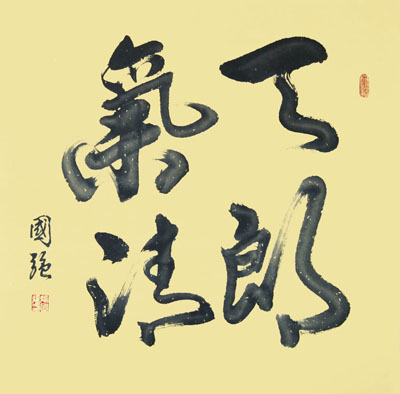 天朗
氣清
國強